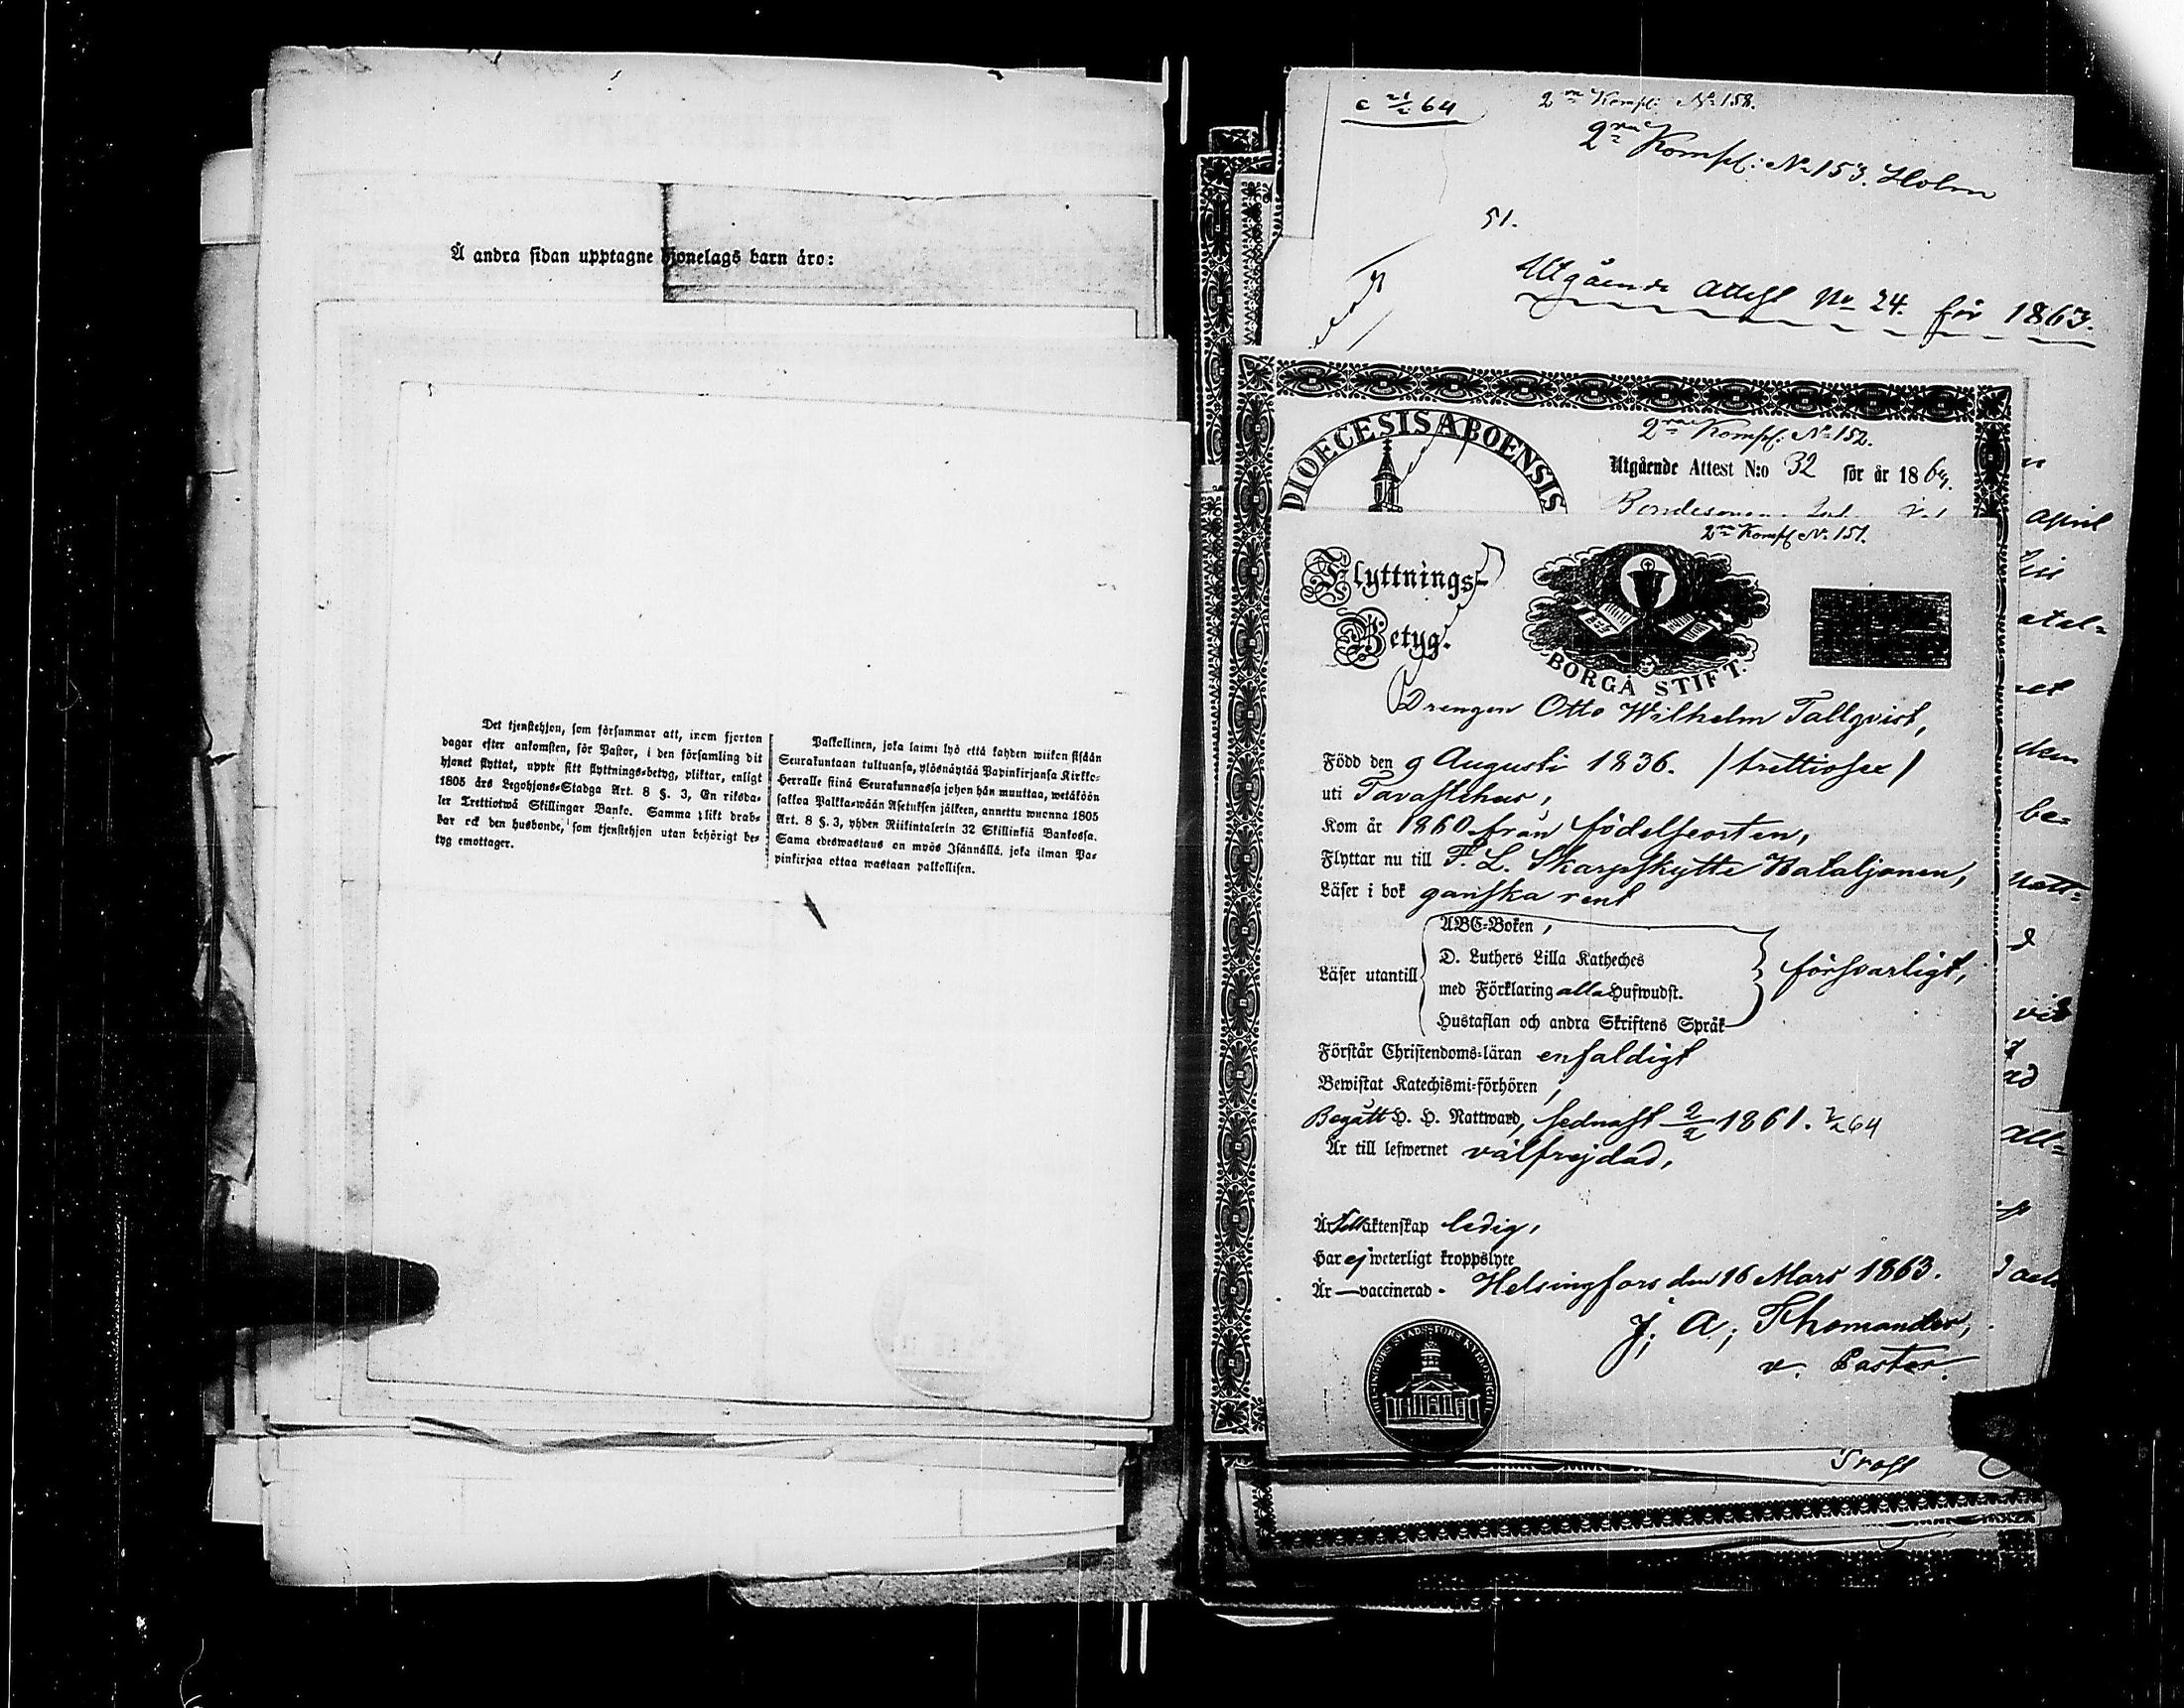 Å andra sidan upptagne hjonelags barn äro:
Det tjenstehjon, som försummar att, inom fjorton
dagar efter ankomsten, för Pastor, i den församling dit
hjonet flyttat, uppte sitt flyttnings-betyg, pliktar, enligt
1805 års Legohjons-Stadga Art. 8 §. 3, En riksda-
ler Trettiotwå Skillingar Banko. Samma plikt drab-
bar ock den husbonde, som tjenstehjon utan behörigt be-
tyg emottager.
Palkollinen, joka laimi lyö että kahden wiikon sisään
Seurakuntaan tultuansa, ylösnäytää Papinkirjansa Kirkko-
Herralle siinä Seurakunnassa johon hän muuttaa, wetäköön
sakkoa Palkka-wään Asetuksen jälkeen, annettu wuonna 1805
Art. 8 §. 3, yhden Riikintalerin 32 Skillinkiä Bankossa.
Sama edeswastaus on myös Isännällä, joka ilman Pa-
pinkirjaa ottaa wastaan palkollisen.
2ra Komp: No 158.
2ra Komp: No 153. Holm
51.
Utgående attest No 24. för 1863.
DIOECESIS ABOENSIS
2ra Komp: No 152.
Utgående Attest N:o 32 för år 1864.
2ra Komp No 151.
Flyttnings-
Betyg.
BORGÅ STIFT.
Drengen Otto Wilhelm Tallqvist,
Född den 9 Augusti 1836. /trettiosex/
uti Tavastehus,
Kom år 1860 från födelseorten,
Flyttar nu till F. L. Skarpskytte Bataljonen,
Läser i bok ganska rent
Läser utantill
ABC-Boken,
D. Luthers Lilla Katheches
med Förklaring alla Hufwudst.
Hustaflan och andra Skriftens Språk
försvarligt,
Förstår Christendoms-läran enfaldigt
Bewistat Katechismi-förhören,
Begått H. H. Nattward, sednast 2/2 1861.
Är till lefwernet välfrejdad,
Är till äktenskap ledig,
Har ej weterligt kroppslyte
Är — vaccinerad. Helsingfors den 16 Mars 1863.
J. A. Thomander,
v. Pastor.
april
dem
be-
natt-
all-
Prost